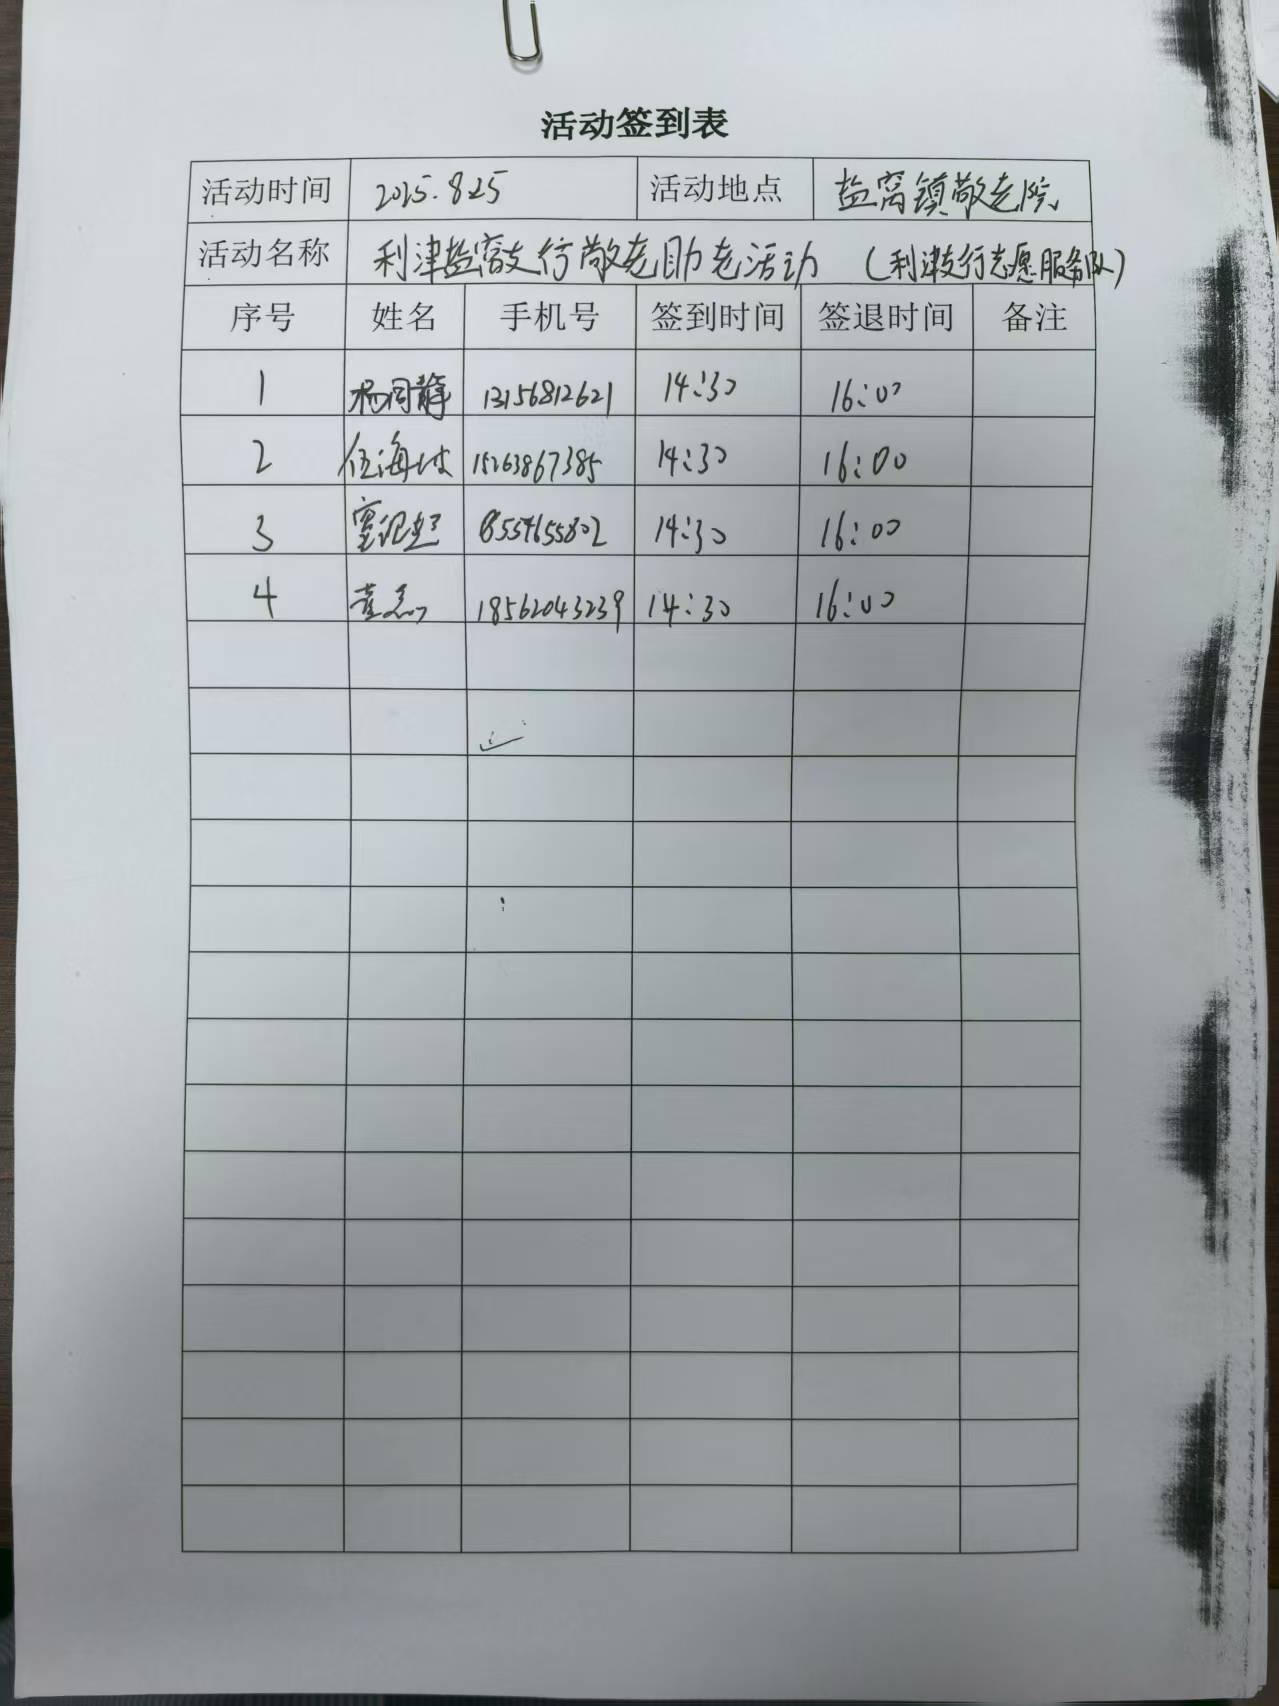 活动签到表
活动时间 2025.8.25 活动地点 盐窝镇敬老院
活动名称 利津盐窝支行敬老助老活动 (利津支行志愿服务队)
序号 姓名 手机号 签到时间 签退时间 备注
1 杨同静 13156812621 14:30 16:00
2 任海波 15263867385 14:30 16:00
3 14:30 16:00
4 18562043239 14:30 16:00